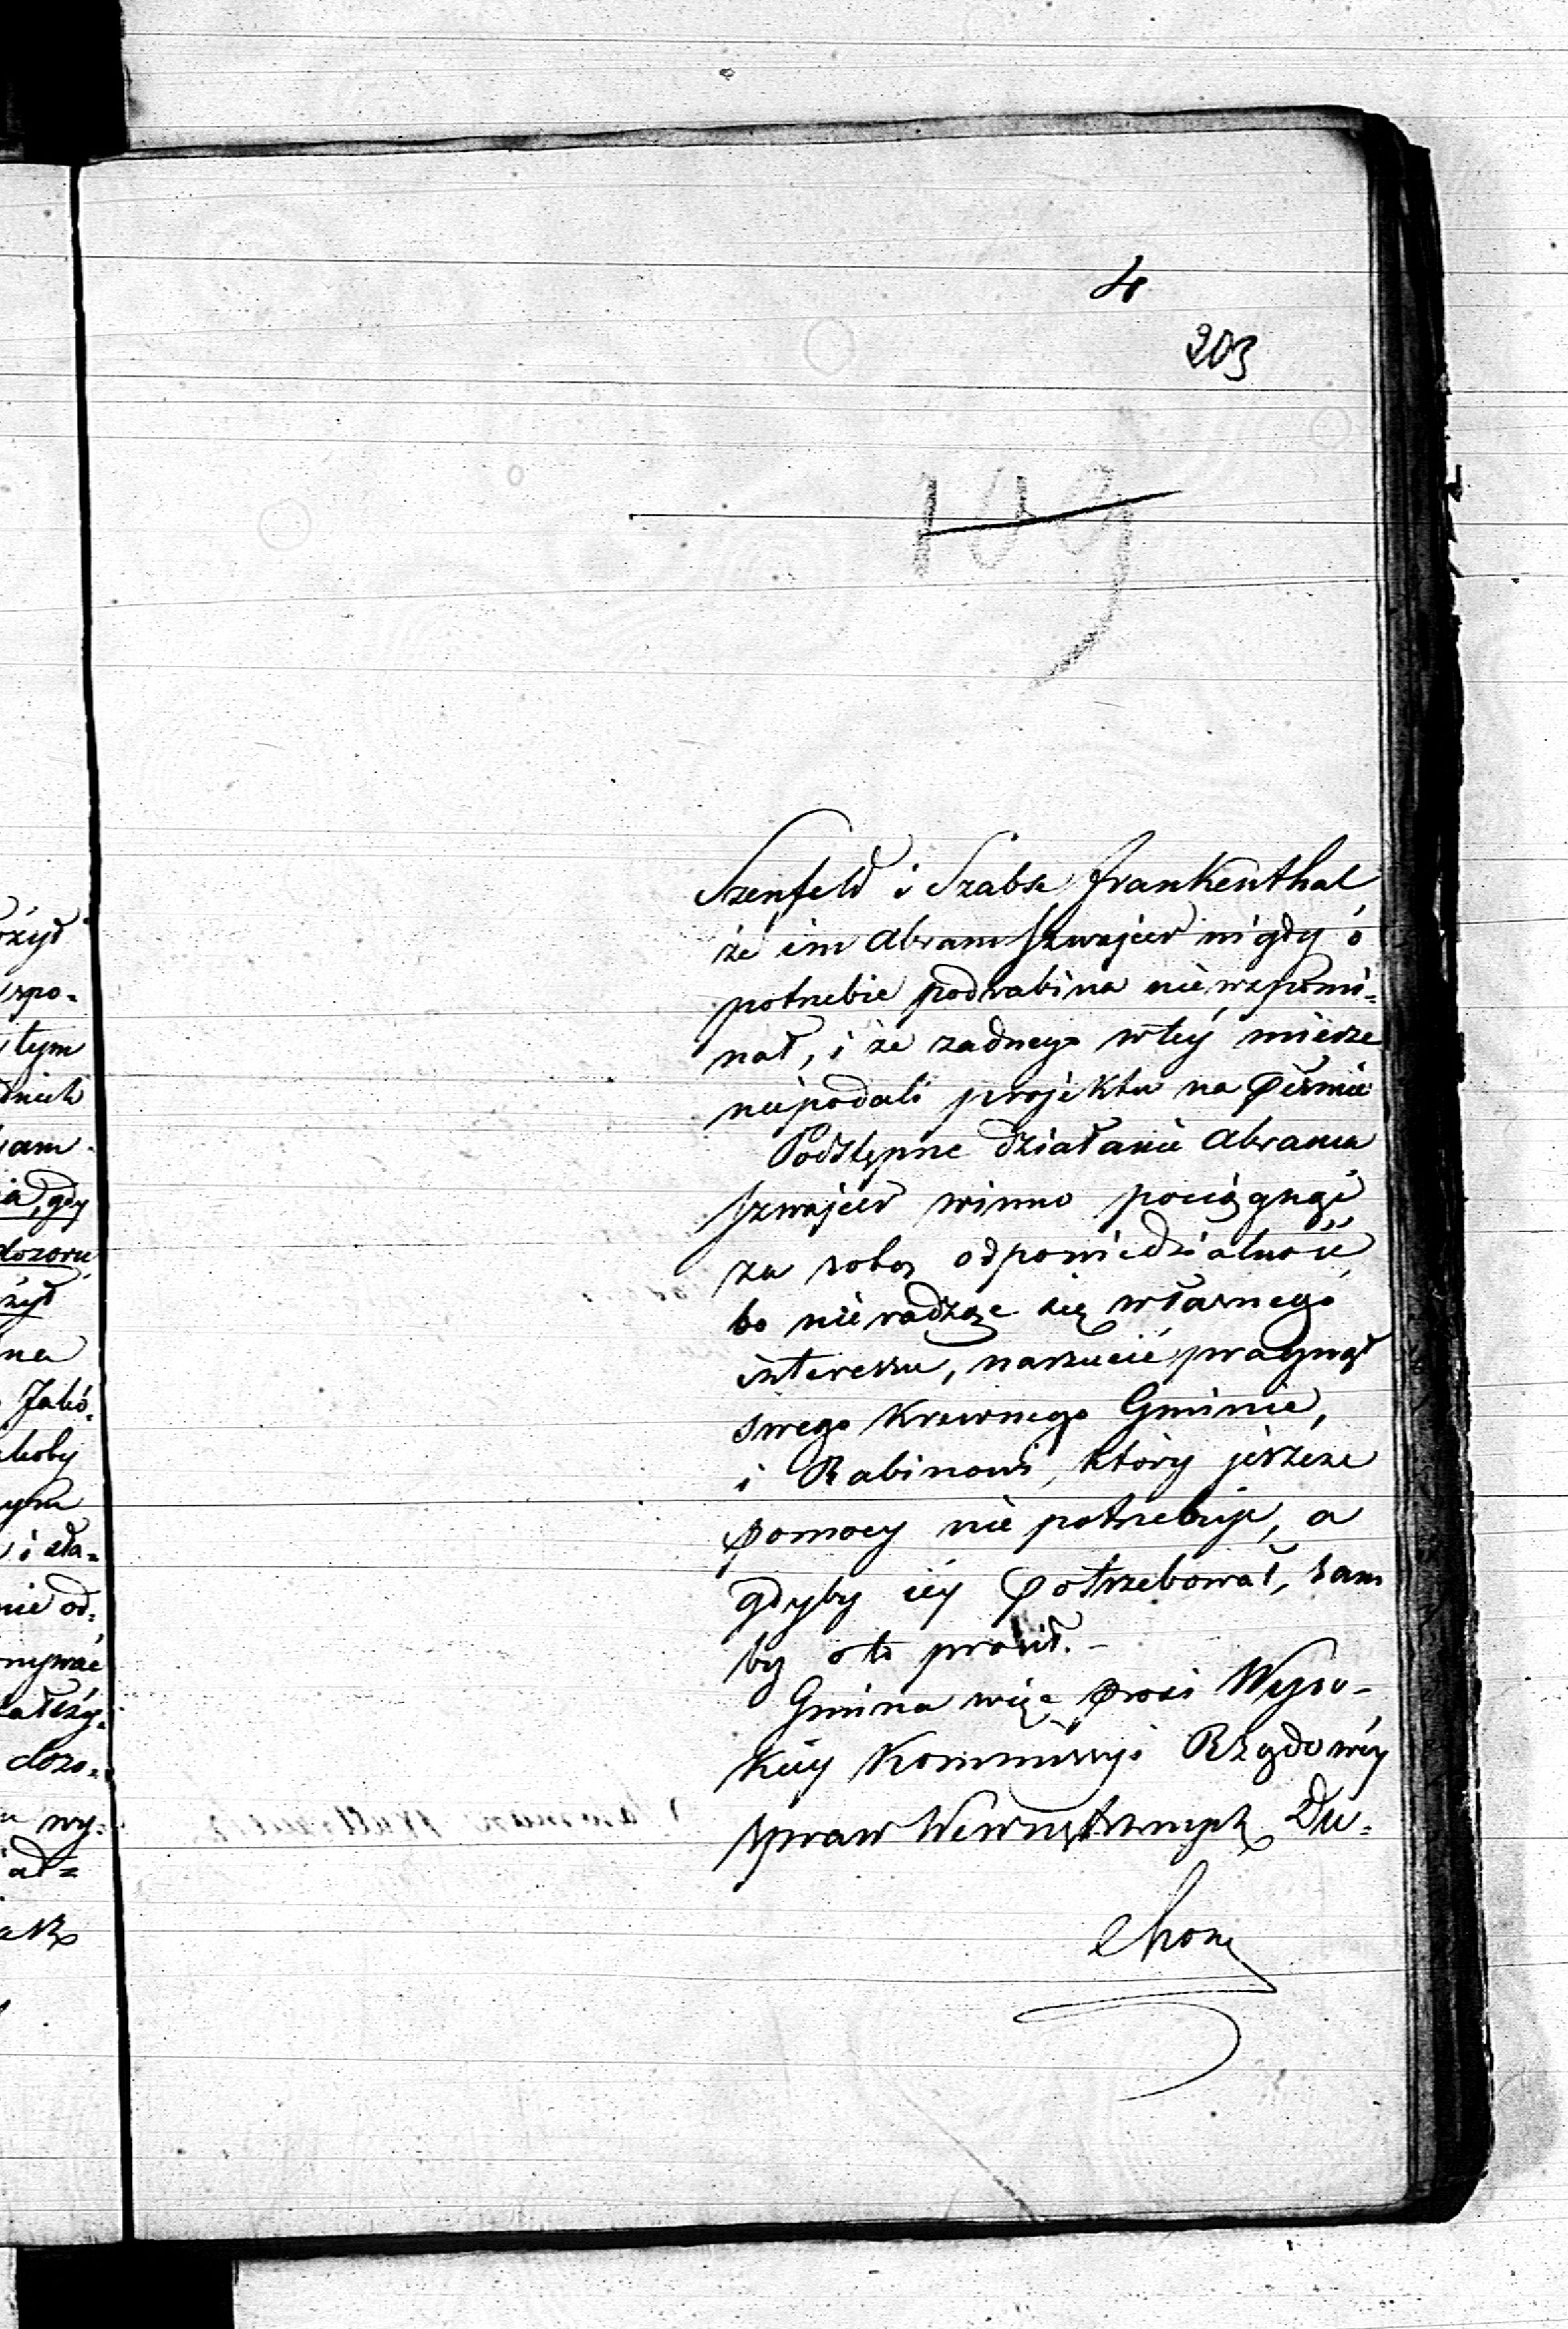 4
203
109
Szenfeld i Szabse Frankenthal,
że im Abram Szwajcer nigdy o
potrzebie podrabina nie wspomi=
nał, i że żadnego w tey mierze
nie podali projektu na piśmie
Podstępne działanie Abrama
Szwajcer winno pociągnąć
za sobą odpowiedzialność,
bo nie radząc się własnego
interessu, narzucić pragnął
swego krewnego Gminie,
i Rabinowi, który jeszcze
pomocy nie potrzebuje, a
gdyby iéy potrzebował, sam
by o to prosił. -
Gmina więc prosi Wyso-
kiéy Kommissyi Rządowéy
Spraw Wewnętrznych Du=
chow
ożyd
spo=
tym
dnich
am
ia, gdy
dozoru
żyd
na
Jakó=
koby
ym
i sta=
nie od=
nywać
ależy=
dozo=
wy=
ad=